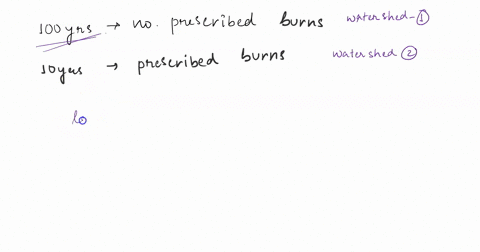 100 yrs → no. prescribed burns watershed-①
10 yrs → prescribed burns watershed ②
lo